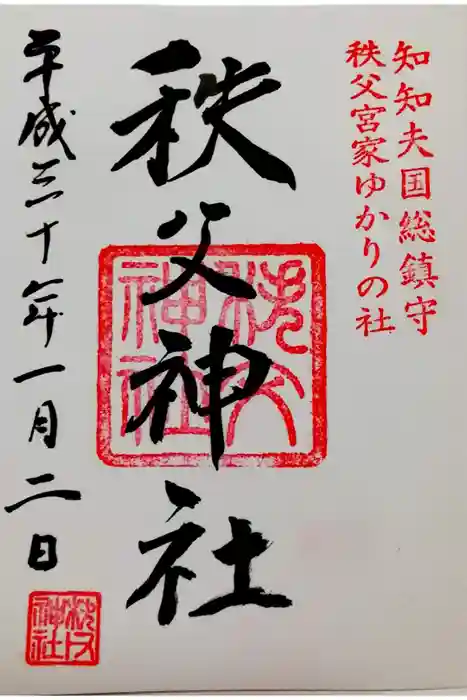 知知夫国総鎮守
秩父宮家ゆかりの社
秩父神社
秩父神社
平成三十年一月二日
秩父神社